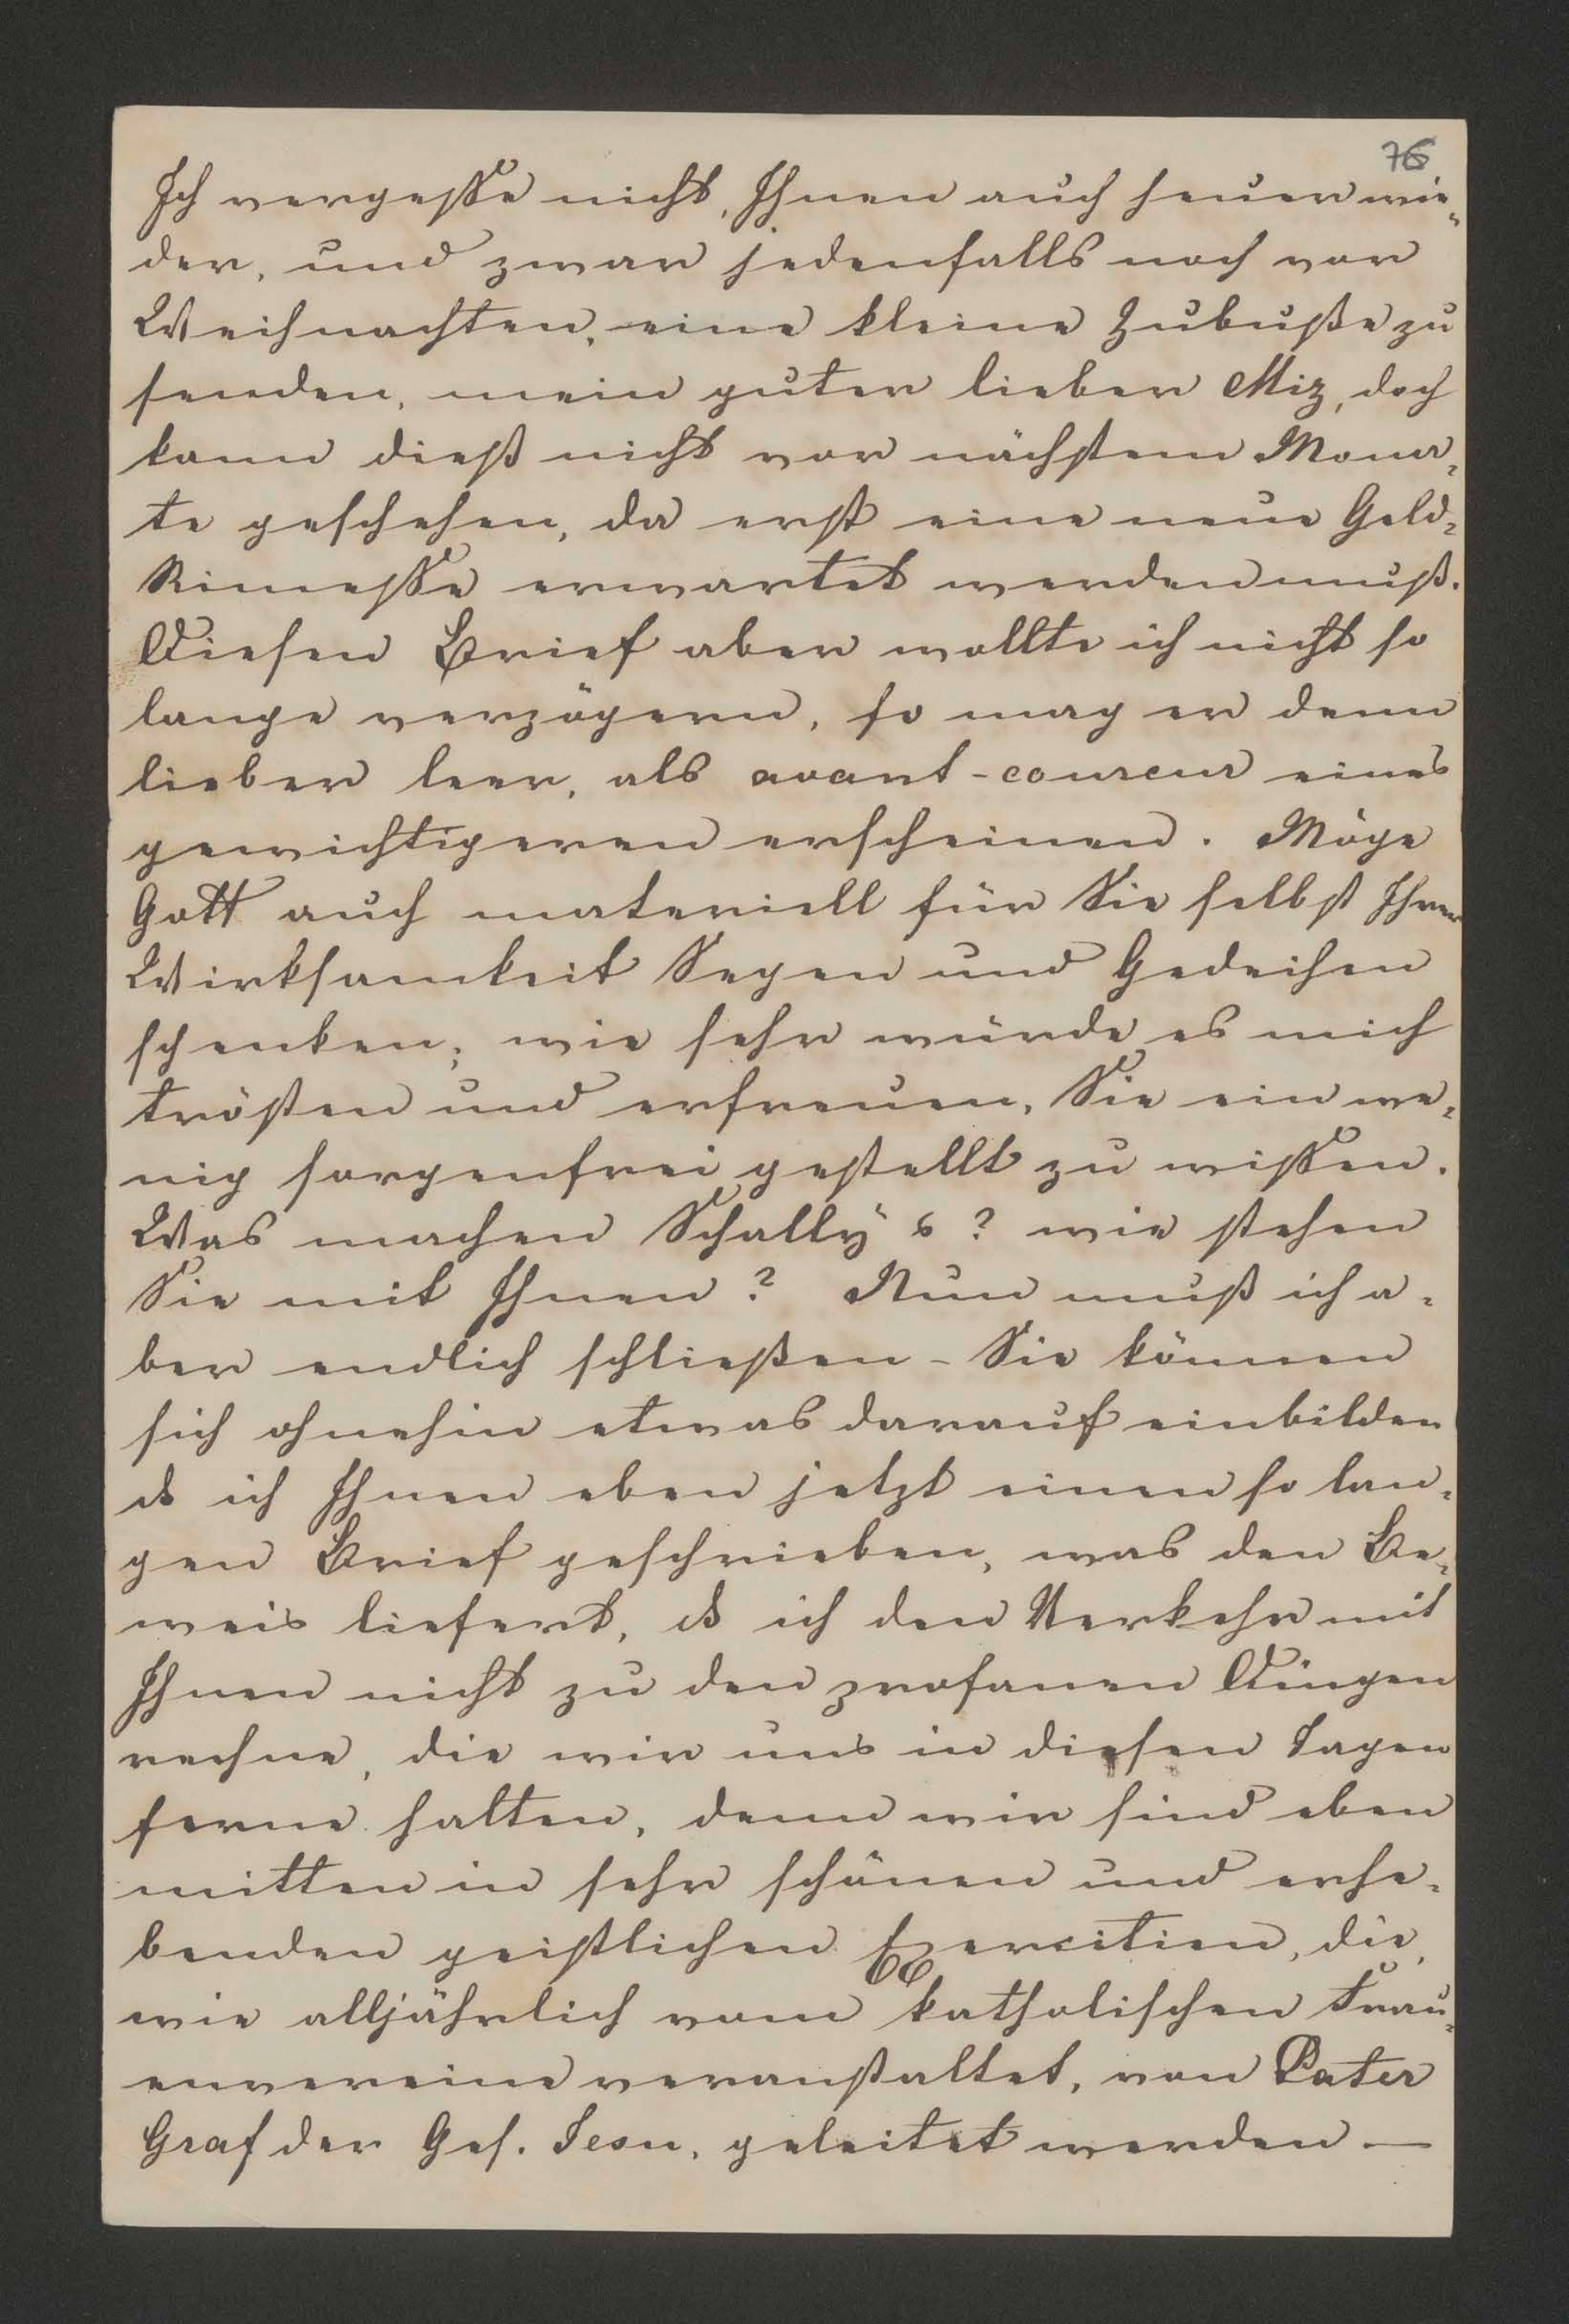 76
Ich vergesse nicht, Ihnen auch heuer wie-
der, und zwar jedenfalls noch vor
Weihnachten, eine kleine Zubuße zu
senden, mein guter lieber Miz, doch
kann dieß nicht vor nächstem Mona-
te geschehen, da erst eine neue Geld-
Rimesse erwartet werden muß.
Diesen Brief aber wollte ich nicht so
lange verzögern, so mag er denn
lieber leer, als avant-coureur eines
gewichtigeren erscheinen. Möge
Gott auch materiell für Sie selbst Ihrer
Wirksamkeit Segen und Gedeihen
schenken; wie sehr würde es mich
trösten und erfreuen, Sie ein we-
nig sorgenfrei gestellt zu wissen.
Was machen Schally's? wie stehen
Sie mit Ihnen? Nun muß ich a-
ber endlich schließen - Sie können
sich ohnehin etwas darauf einbilden
ds ich Ihnen eben jetzt einen so lan-
gen Brief geschrieben, was den Be-
weis liefert, ds ich den Verkehr mit
Ihnen nicht zu den profanen Dingen
rechne, die wir uns in diesen Tagen
ferne halten, denn wir sind eben
mitten in sehr schönen und erhe-
benden geistlichen Exercitien, die,
wie alljährlich vom katholischen Frau-
envereine veranstaltet, von Pater
Graf der Ges. Jesu, geleitet werden —